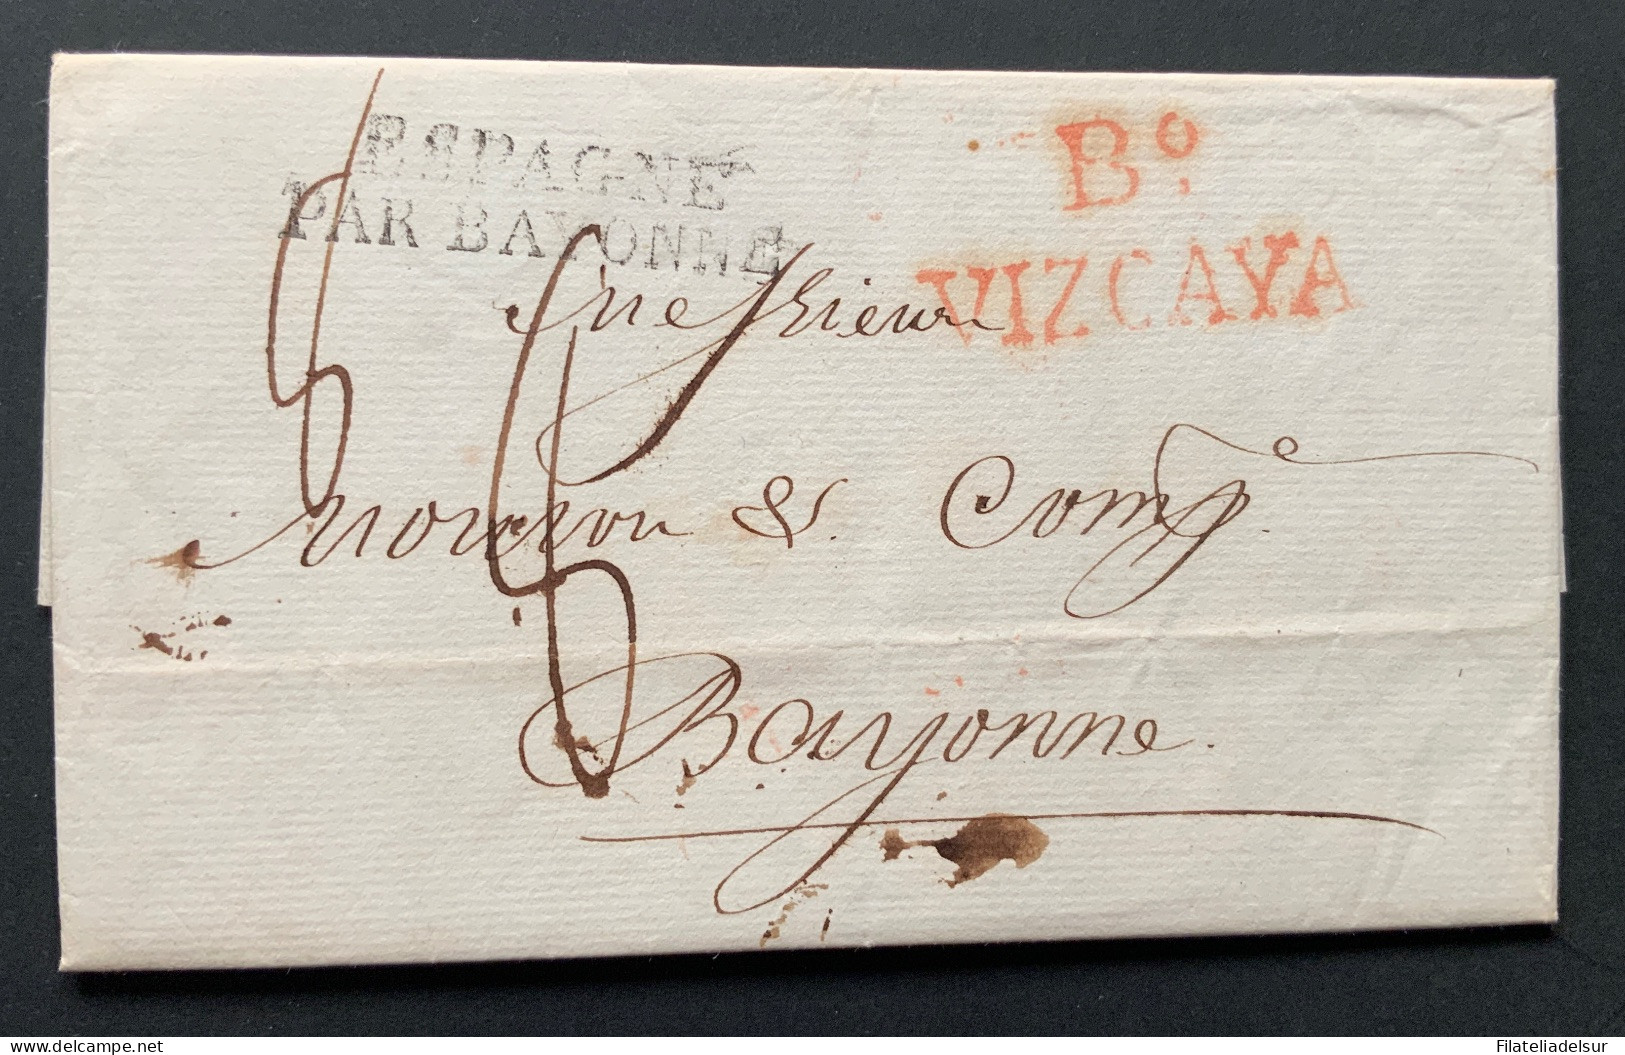 ESPAGNE
PAR BAYONNE
Bº
VIZCAYA
Messieurs
& Compe
Bayonne.
delcampe.net
Filateliadelsur